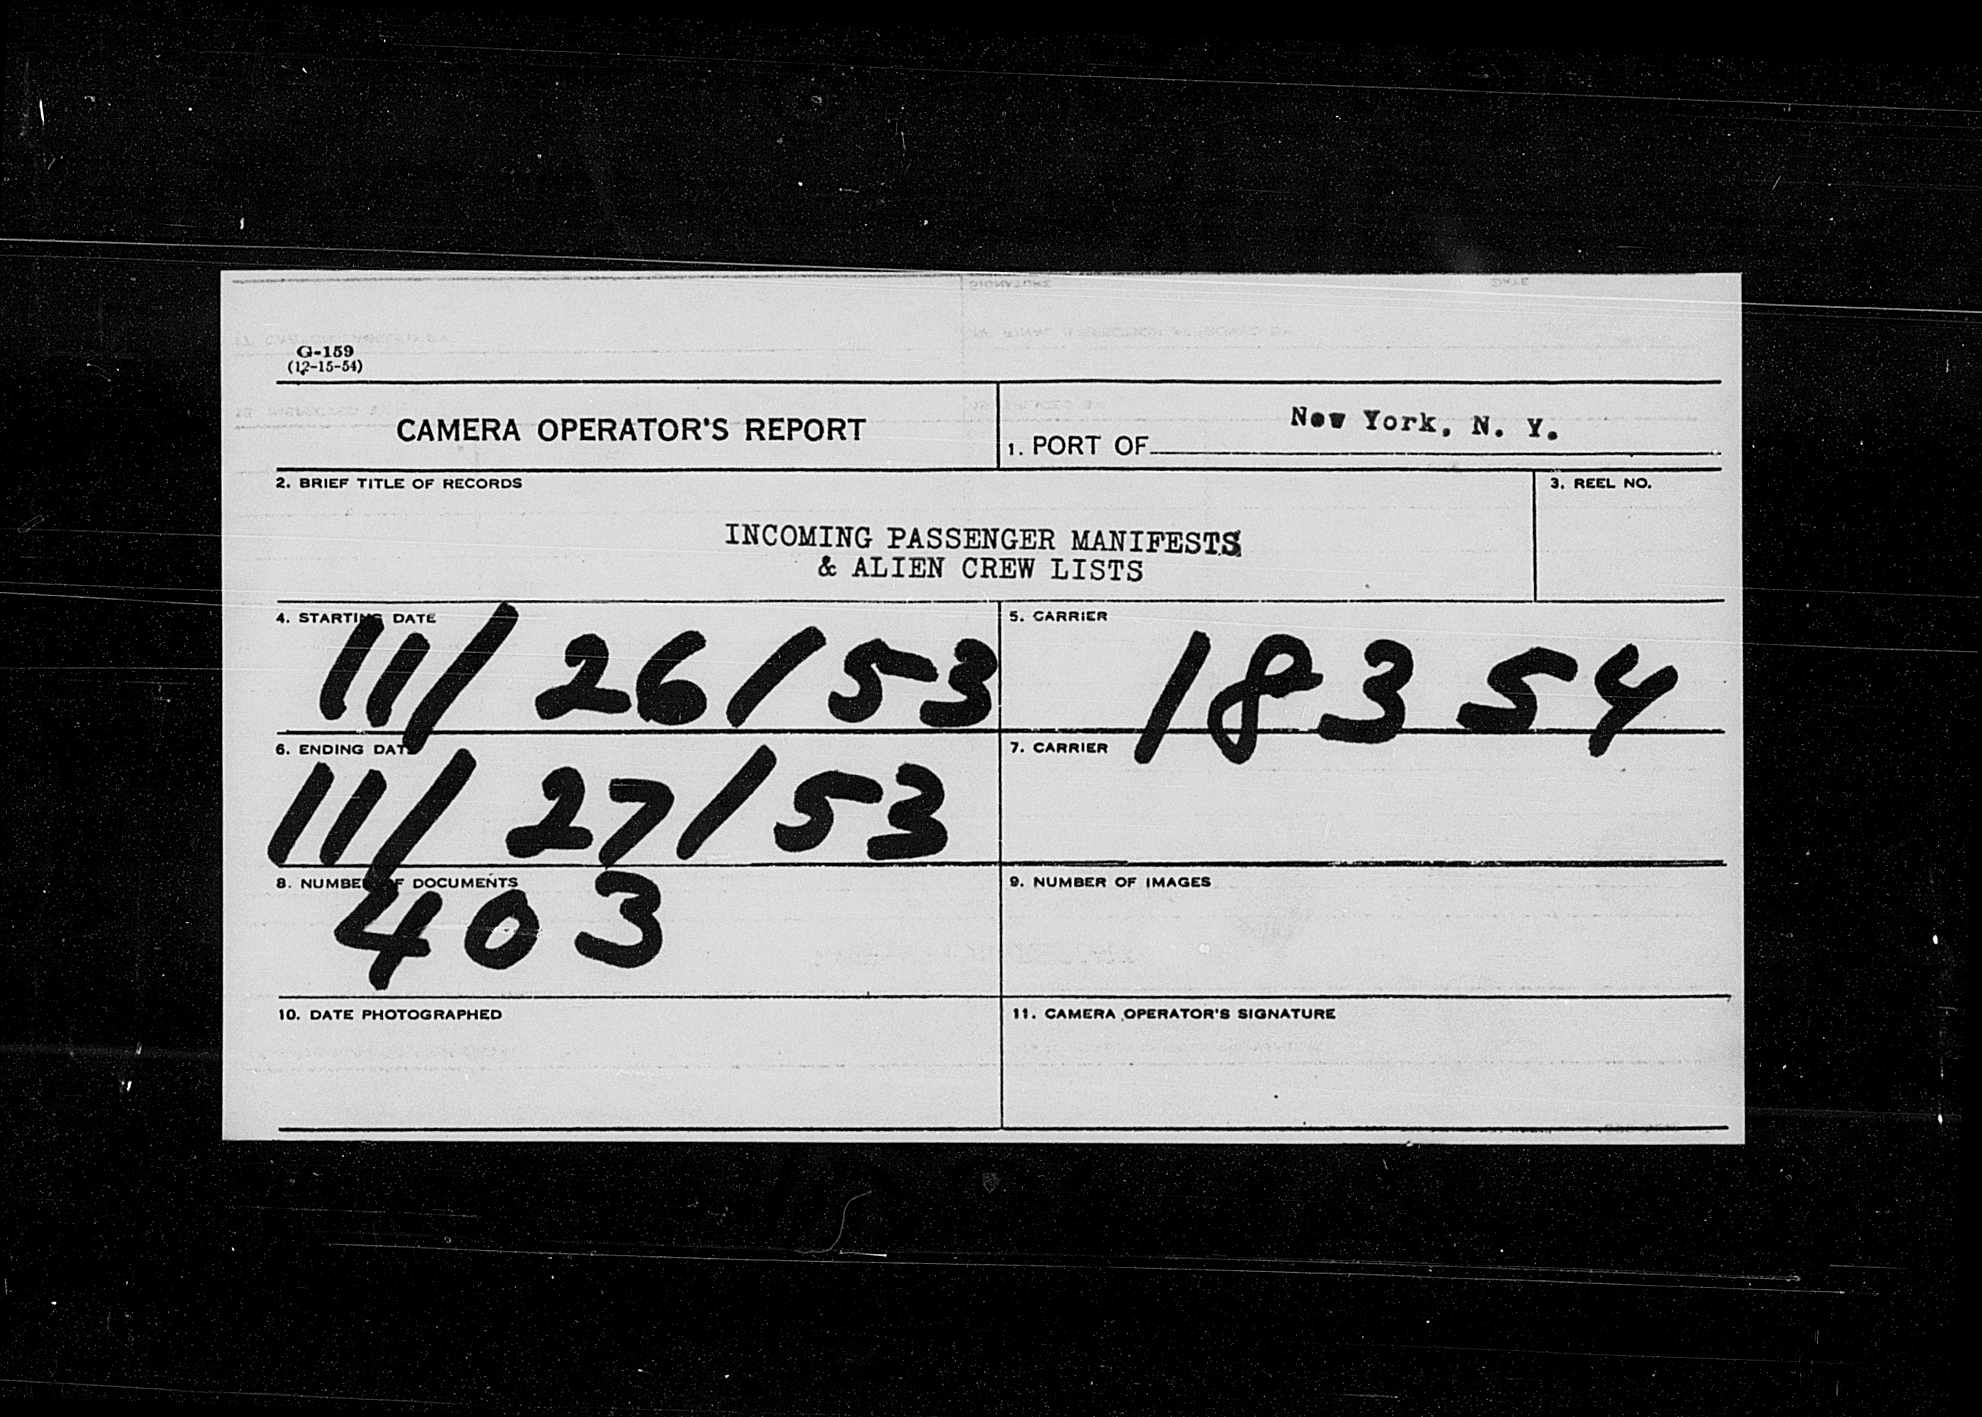 G-159
(12-15-54)
CAMERA OPERATOR'S REPORT
1. PORT OF New York, N. Y.
2. BRIEF TITLE OF RECORDS
3. REEL NO.
INCOMING PASSENGER MANIFESTS
& ALIEN CREW LISTS
4. STARTING DATE
11/26/53
5. CARRIER
18354
6. ENDING DATE
11/27/53
7. CARRIER
8. NUMBER OF DOCUMENTS
403
9. NUMBER OF IMAGES
10. DATE PHOTOGRAPHED
11. CAMERA OPERATOR'S SIGNATURE